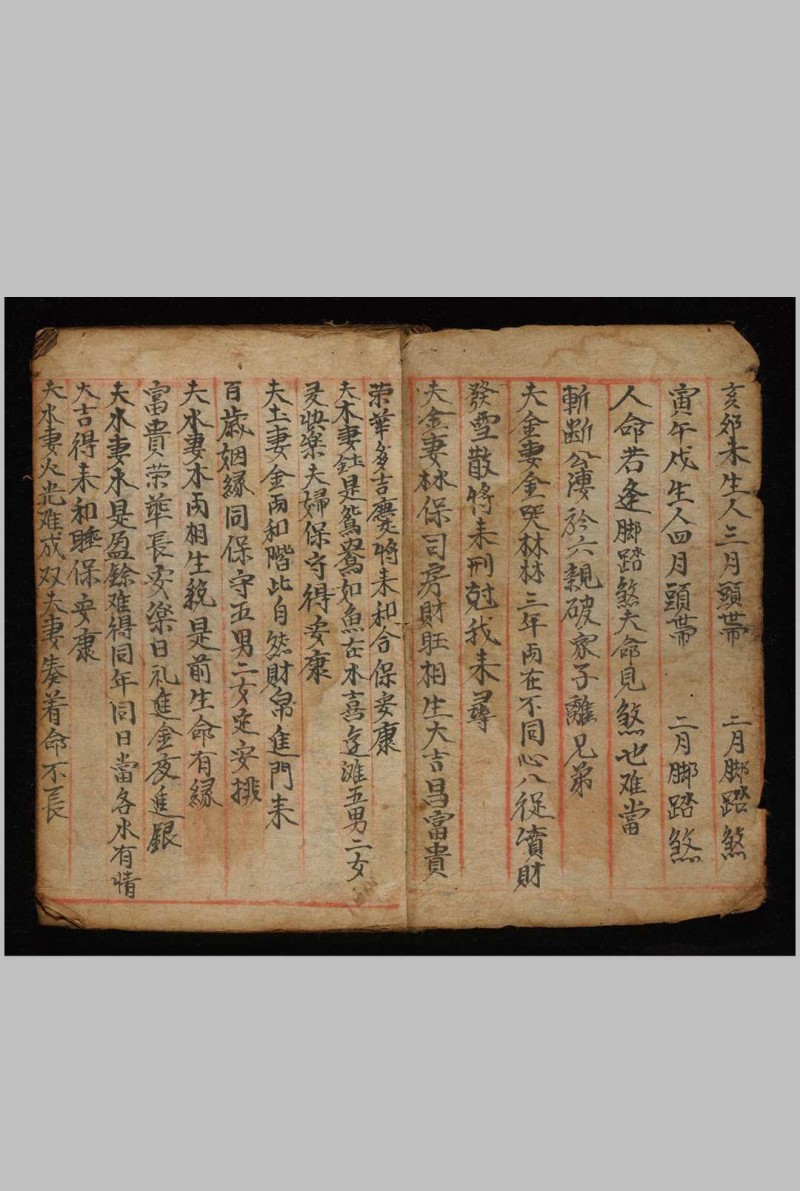 亥卯未生人三月頭帶 二月脚踏煞
寅午戌生人四月頭帶 二月脚踏煞
人命若逢脚踏煞夫命見煞也难當
斬斷公婆於六親破家子離兄弟
夫金妻金哭林林三年两在不同心八従賣財
發雪散将来刑尅我来尋
夫金妻水保司房財旺相生大吉昌富貴
荣華多吉慶将来和合保安康
夫木妻 是鴛鴦如魚在水喜 滩五男二女
更快楽夫婦保守得安康
夫土妻金两和階此自然財帛進門来
百歳姻縁同保守五男二女定安排
夫水妻木两相生統是前生命有縁
富貴荣華長安楽日礼進金夜進銀
夫水妻水是盈餘难得同年同日當各水有情
大吉得来和睡保安康
夫水妻火尅难成双夫妻奏着命不長